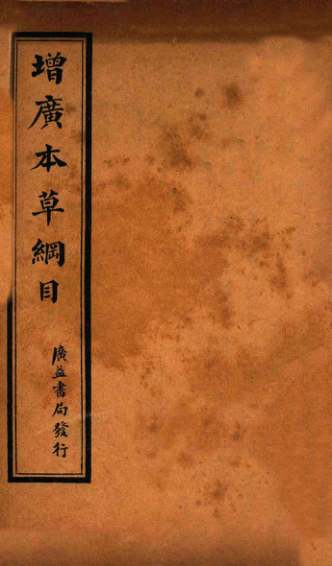 增廣本草綱目
廣益書局發行